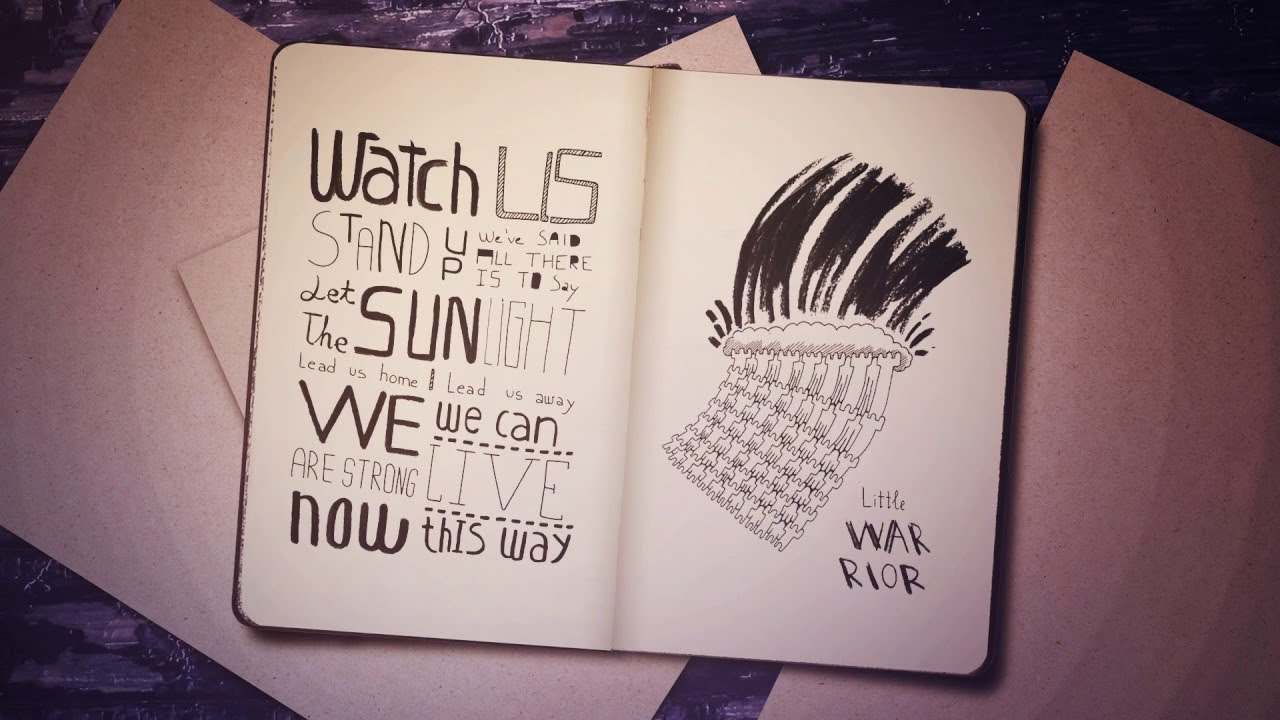 Watch US
STAND UP We've SAID
ALL THERE
IS TO Say
Let
The SUNLIGHT
Lead us home I Lead us away
WE we can
ARE STRONG LIVE
now this way
Little
WAR
RIOR